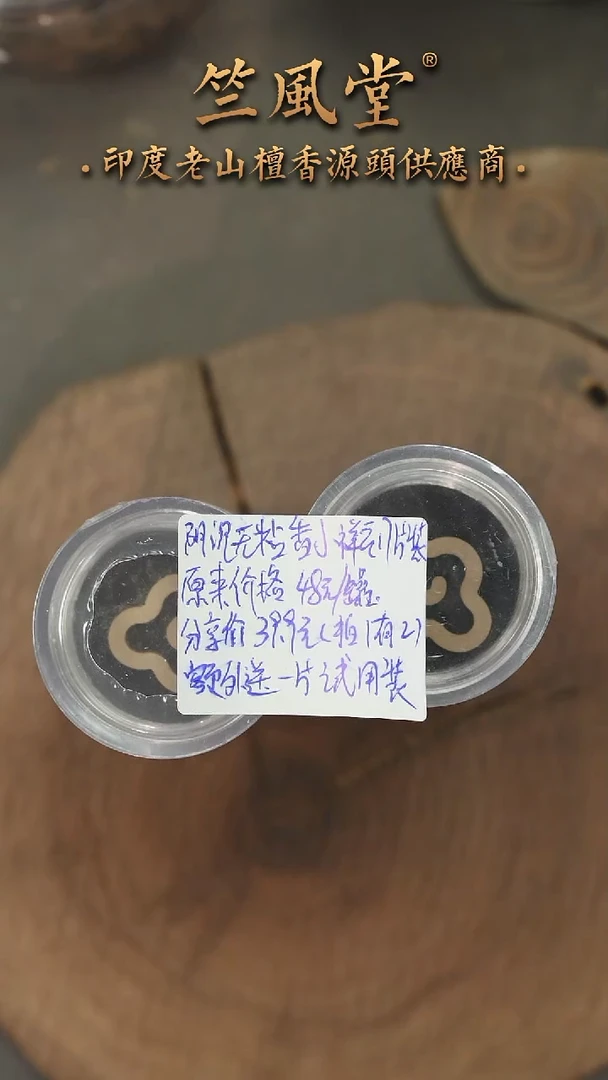 竺風堂®
·印度老山檀香源頭供應商·
阴沉无粘香小祥云17片装
原来价格 48元/罐
分享价 39.9元(拍1有2)
额外送一片试用装